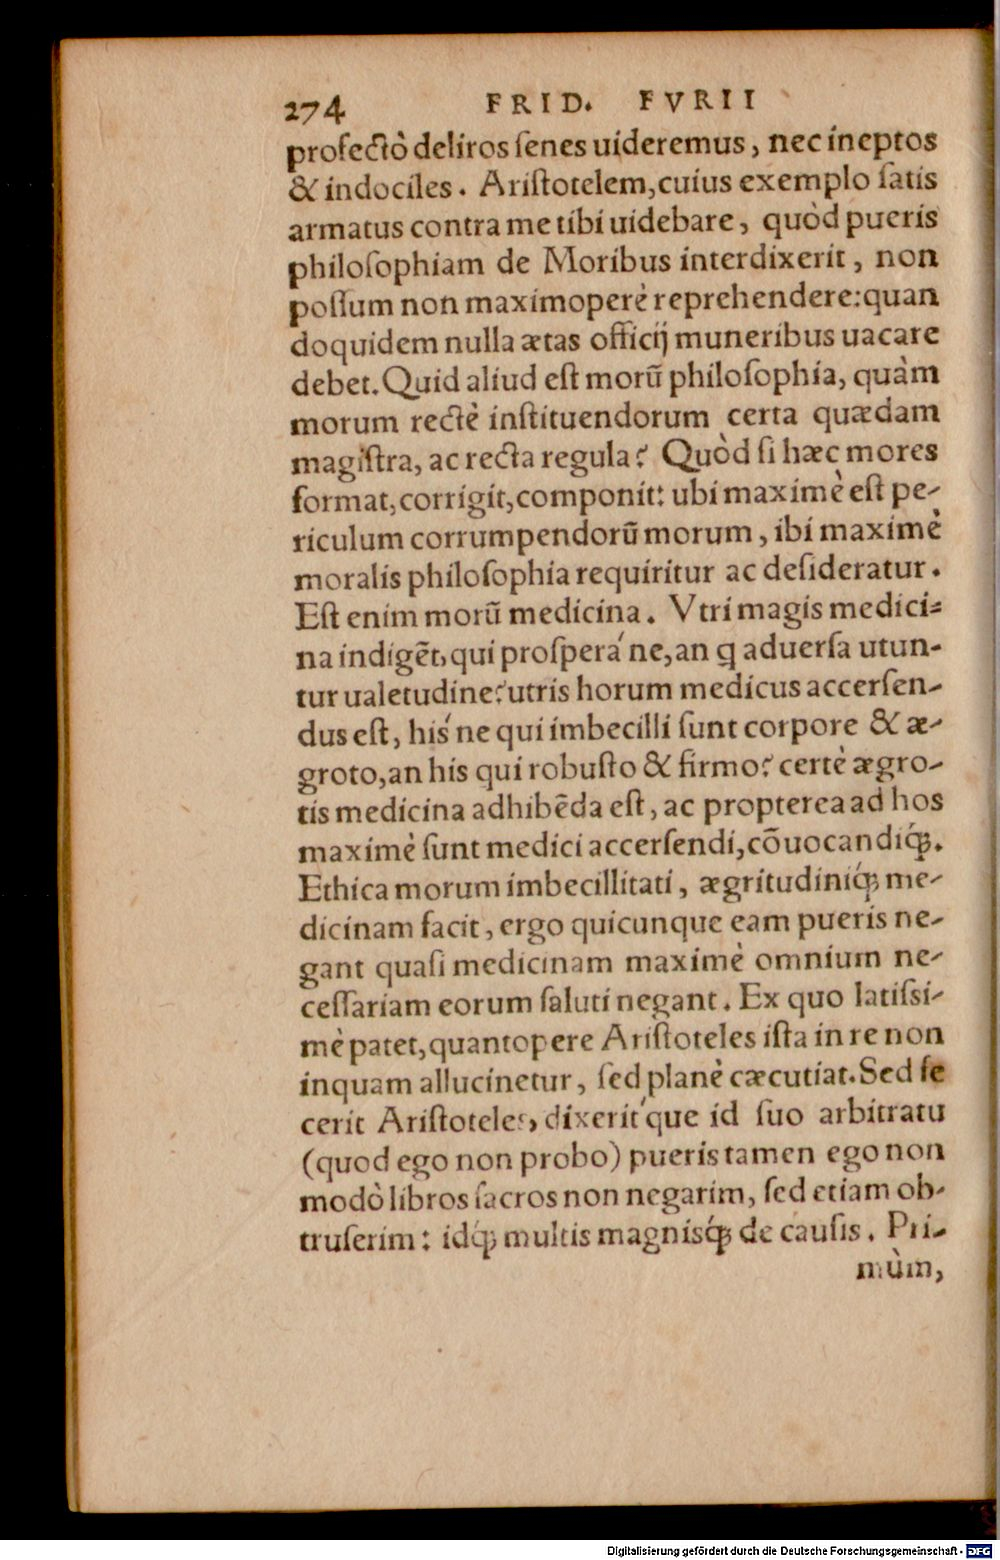 274 FRID. FVRII
profectò deliros ſenes uideremus, nec ineptos
& indociles. Ariſtotelem, cuius exemplo ſatis
armatus contra me tibi uidebare, quòd pueris
philoſophiam de Moribus interdixerit, non
poſſum non maximoperè reprehendere: quan
doquidem nulla ætas officij muneribus uacare
debet. Quid aliud eſt morũ philoſophia, quàm
morum rectè inſtituendorum certa quædam
magiſtra, ac recta regula? Quòd ſi hæc mores
format, corrigit, componit: ubi maximè eſt pe-
riculum corrumpendorũ morum, ibi maximè
moralis philoſophia requiritur ac deſideratur.
Eſt enim morũ medicina. Vtri magis medici=
na indigẽt, qui proſperá ne, an q̃ aduerſa utun-
tur ualetudine? utris horum medicus accerſen-
dus eſt, hiś ne qui imbecilli ſunt corpore & æ-
groto, an his qui robuſto & firmo? certè ægro-
tis medicina adhibẽda eſt, ac propterea ad hos
maximè ſunt medici accerſendi, cõuocandiq́;.
Ethica morum imbecillitati, ægritudiniq́; me-
dicinam facit, ergo quicunque eam pueris ne-
gant quaſi medicinam maximè omnium ne-
ceſſariam eorum ſaluti negant. Ex quo latiſsi-
mè patet, quantopere Ariſtoteles iſta in re non
inquam allucinetur, ſed planè cæcutiat. Sed fe
cerit Ariſtoteles, dixerit́que id ſuo arbitratu
(quod ego non probo) pueris tamen ego non
modò libros ſacros non negarim, ſed etiam ob-
truſerim: idq́; multis magnisq́; de cauſis. Pri-
mùm,
Digitalisierung gefördert durch die Deutsche Forschungsgemeinschaft - DFG